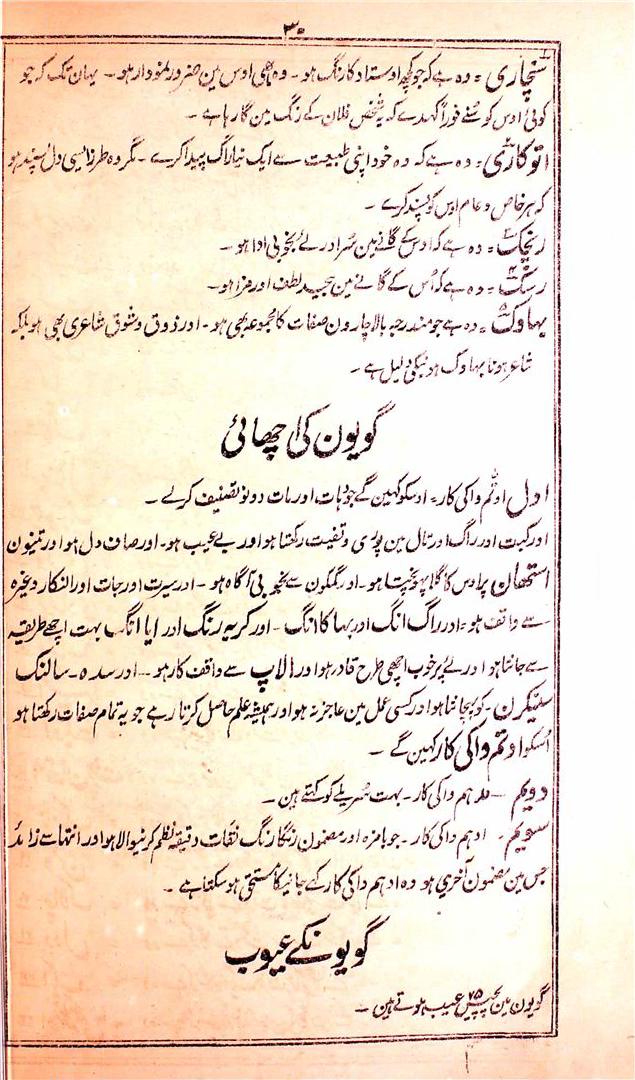 ۳۰
سنچاری = وہ ہے کہ جو کچھ اوستاد کا رنگ ہو۔ وہ بھی اوس مین ضرور نمودار ہو۔ یہان تک کہ جو
کوئی اوس کو سُنے فوراً کہدے کہ یہ شخص فلان کے رنگ مین گا رہا ہے۔
انوکاری = وہ ہے کہ وہ خود اپنی طبیعت سے ایک نیا راگ پیدا کرے۔ مگر وہ طرز ایسی دل پسند ہو
کہ ہر خاص و عام اوس کو پسند کرے۔
رنجک = وہ ہے کہ اوس کے گانے مین سُر اور لے بخوبی ادا ہو۔
رسک = وہ ہے کہ اُس کے گانے مین عجیب لطف اور مزا ہو۔
بھاوک = وہ ہے جو مندرجہ بالا چارون صفات کا مجموعہ بھی ہو۔ اور ذوق و شوق شاعری بھی ہو بلکہ
شاعر ہونا بھاوک ہونیکی دلیل ہے۔
گویون کی اچھائی
اول اوتّم واکی کار = اوسکو کہین گے جو دہات اور مات دونو تصنیف کرلے۔
اور کبت اور راگ اور تال مین پوری وقفیت رکھتا ہو اور بے عیب ہو۔ اور صاف دل ہو اور تینون
استھان پر اوس کا گلا پہونچتا ہو۔ اور گمکون سے بخوبی آگاہ ہو۔ اور سرت اور جات اور النکار وغیرہ
سے واقف ہو۔ اور راگ انگ اور بھاکا انگ۔ اور کریہ رنگ اور اپا انگ بہت اچھے طریقہ
سے جانتا ہو اور لے پر خوب اچھی طرح قادر ہو اور الاپ سے واقف کار ہو۔ اور سدہ۔ سالنگ
سنکرن۔ کو پہچانتا ہو اور کسی عمل مین عاجز نہ ہو اور ہمیشہ علم حاصل کرتا رہے جو یہ تمام صفات رکھتا ہو
اُسکو اوتم واکی کار کہین گے۔
دویم۔ مدہم واکی کار۔ بہت سُریلے کو کہتے ہین۔
سویم۔ ادہم واکی کار۔ جو بامزہ اور مضمون رنگا رنگ نقات دقیقہ نظم کرنیوالا ہو اور انتہا سے زائد
جس مین مضمون آخری ہو وہ ادہم واکی کار کے جانیکا مستحق ہو سکتا ہے۔
گویونکے عیوب
گویون مین پچیس ۲۵ عیب ہوتے ہین۔